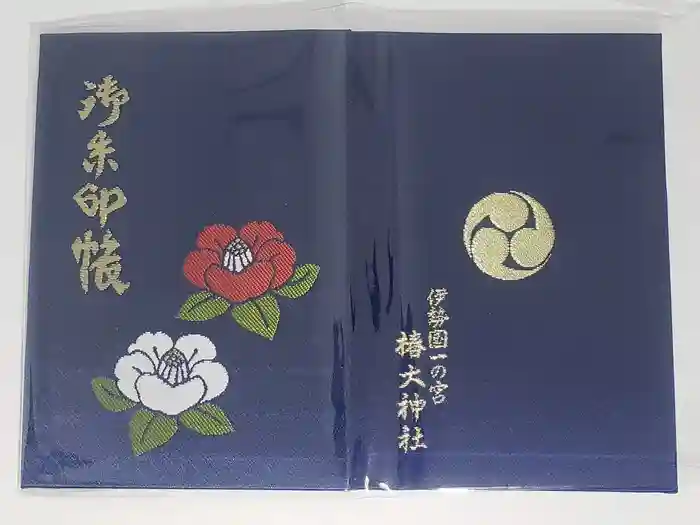 御朱印帳
伊勢國一の宮
椿大神社